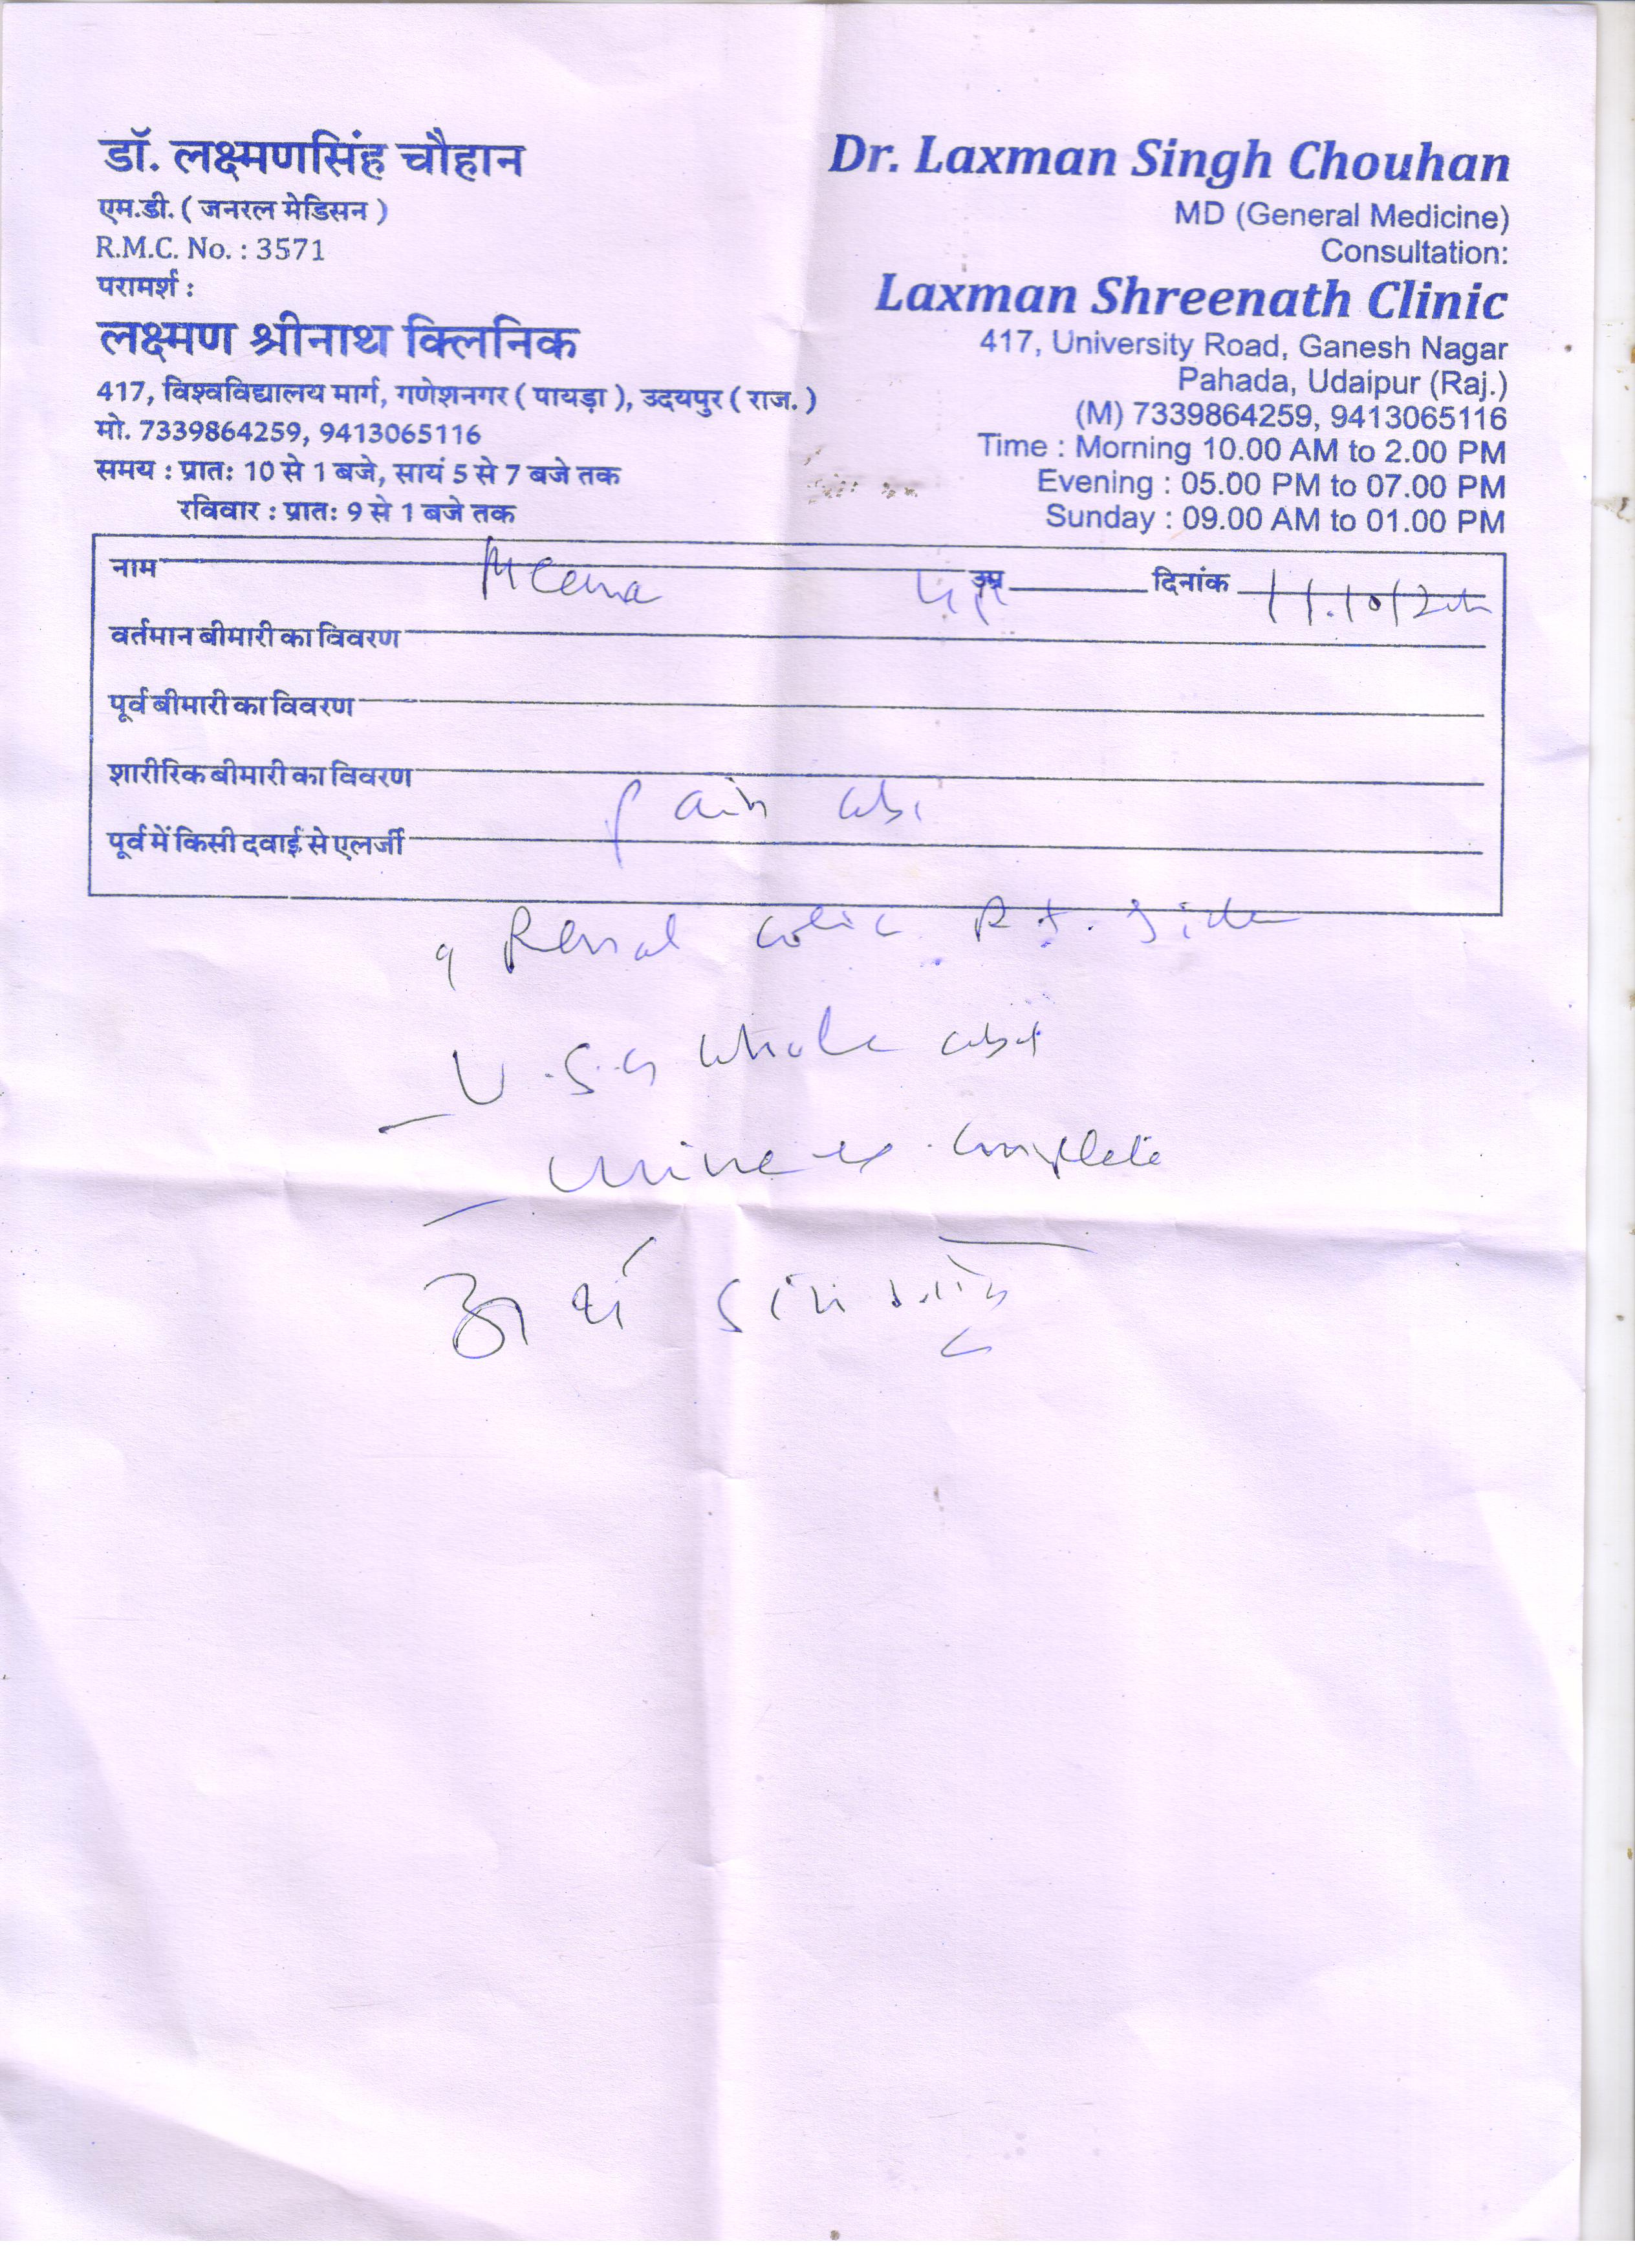 डॉ. लक्ष्मणसिंह चौहान
एम.डी. ( जनरल मेडिसन )
R.M.C. No. : 3571
परामर्श :
लक्ष्मण श्रीनाथ क्लिनिक
417, विश्वविद्यालय मार्ग, गणेशनगर ( पायड़ा ), उदयपुर ( राज. )
मो. 7339864259, 9413065116
समय : प्रातः 10 से 1 बजे, सायं 5 से 7 बजे तक
रविवार : प्रातः 9 से 1 बजे तक
Dr. Laxman Singh Chouhan
MD (General Medicine)
Consultation:
Laxman Shreenath Clinic
417, University Road, Ganesh Nagar
Pahada, Udaipur (Raj.)
(M) 7339864259, 9413065116
Time : Morning 10.00 AM to 2.00 PM
Evening : 05.00 PM to 07.00 PM
Sunday : 09.00 AM to 01.00 PM
नाम Meena उम्र दिनांक
वर्तमान बीमारी का विवरण
पूर्व बीमारी का विवरण
शारीरिक बीमारी का विवरण
Pain abd
पूर्व में किसी दवाई से एलर्जी
Renal colic Rt. side
U.S.G whole abd
urine ex. complete